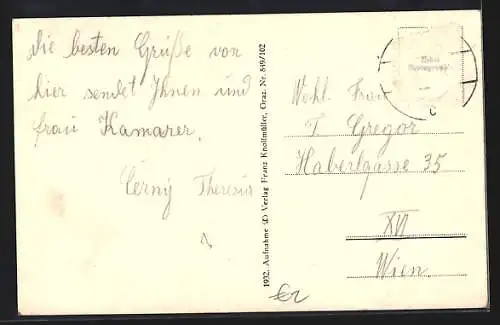 die besten Grüße von
hier sendet Ihnen und
frau Kamarer.
Černý Theresia
1932. Aufnahme (I) Verlag Franz Knollmüller, Graz. Nr. 849/102
Wohl. Frau
T Gregor
Haberlgasse 35
XVI
Wien.